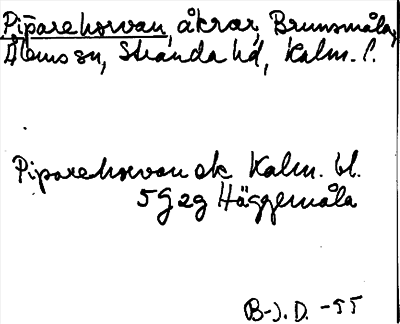 Piparehorvan, åkrar, Brunsmåla,
Ålems sn, Stranda hd, Kalm. l.
Piparehorvan ek Kalm. bl.
5G2g Häggemåla
B-J. D. -55